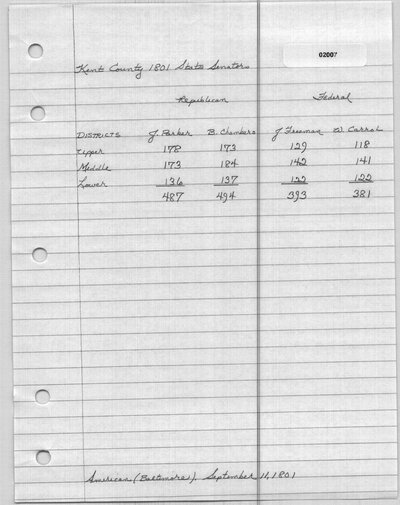 02007
Kent County 1801 State Senators
Republican Federal
DISTRICTS J. Parker B. Chambers J Freeman W Carrol
Upper 178 173 129 118
Meddle 173 184 142 141
Lower 136 137 122 122
487 494 393 381
American (Baltimore), September 11, 1801